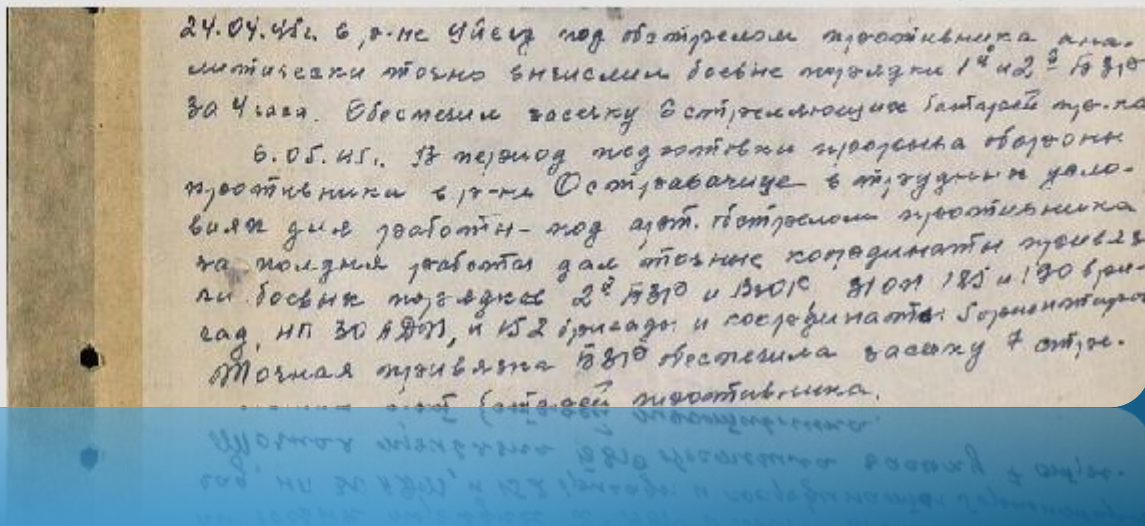 24.04.45г. в р-не Уйезд под обстрелом противника ана-
литически точно вычислил боевые порядки 1й и 2й БЗР
за 4 часа. Обеспечил засечку 6 стреляющих батарей пр-ка
6.05.45г. В период подготовки прорыва обороны
противника в р-не Остравачице в трудных усло-
виях дня работы - под арт. обстрелом противника
за полдня работы дал точные координаты привяз
ки боевых порядков 2й БЗР и 185 и 190 бри-
гад, НП 30 АДП, и 152 бригады и координаты 5
Точная привязка БЗР обеспечила засечку 7 стре-
батарей противника.